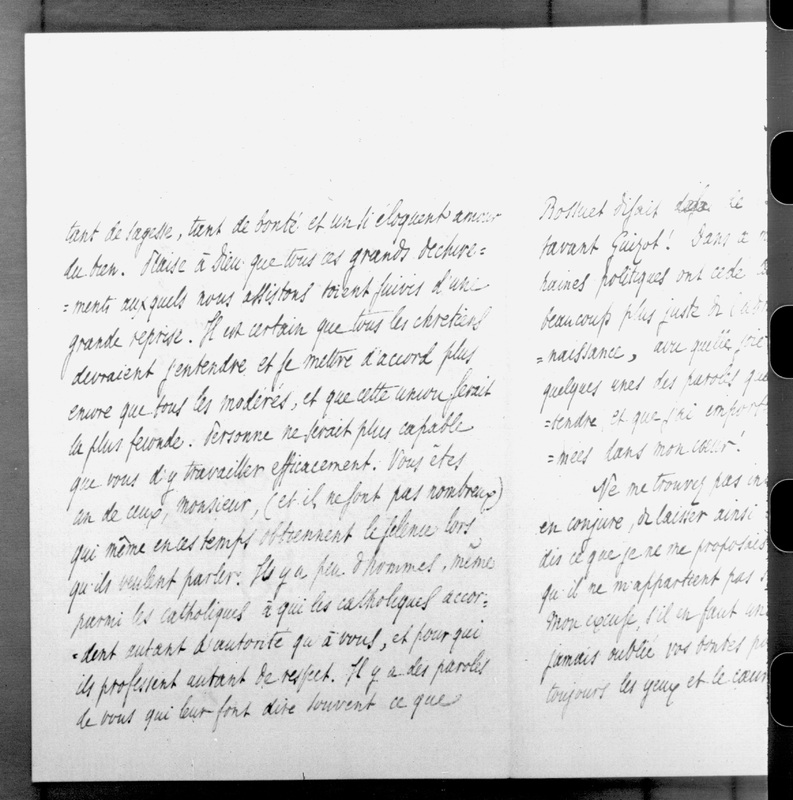 tant de sagesse, tant de bonté et un si éloquent amour
du bien. Plaise à Dieu que tous ces grands dechire=
=ments auxquels nous assistons soient suivis d'une
grande reprise. Il est certain que tous les chretiens
devraient s'entendre et se mettre d'accord plus
encore que tous les modérés, et que cette union serait
la plus feconde. Personne ne serait plus capable
que vous d'y travailler efficacement. Vous êtes
un de ceux, monsieur, (et ils ne sont pas nombreux)
qui même en ces temps obtiennent le silence lors
qu'ils veulent parler. Il y a peu d'hommes, même
parmi les catholiques à qui les catholiques accor=
=dent autant d'autorité qu'à vous, et pour qui
ils professent autant de respect. Il y a des paroles
de vous qui leur font dire souvent ce que
Bossuet disait de
savant Guizot! Dans ce
haines politiques ont cédé
beaucoup plus juste de
=naissance, avec quelle joie
quelques unes des paroles que
=tendre et que j'ai emport
=mées dans mon cœur!
Ne me trouvez pas
en conjure, de laisser ainsi
dis ce que je ne me proposais
qu'il ne m'appartient pas
Mon excuse, s'il en faut une
jamais oublié vos bontés
toujours les yeux et le cœur